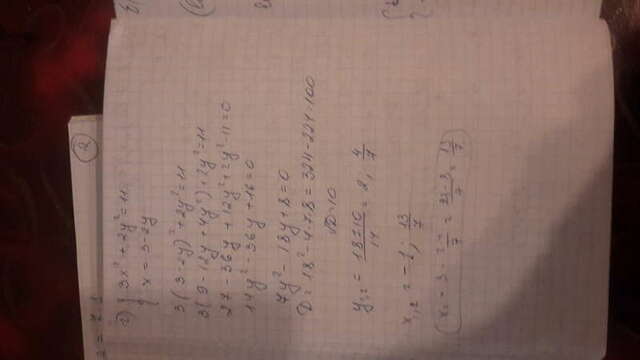 2) { 3x² + 2y² = 11
{ x = 3 - 2y
3(3-2y)² + 2y² = 11
3(9 - 12y + 4y²) + 2y² = 11
27 - 36y + 12y² + 2y² - 11 = 0
14y² - 36y + 16 = 0
7y² - 18y + 8 = 0
D = 18² - 4·7·8 = 324 - 224 = 100
√D = 10
y₁,₂ = (18±10)/14 = 2; 4/7
x₁,₂ = -1; 13/7